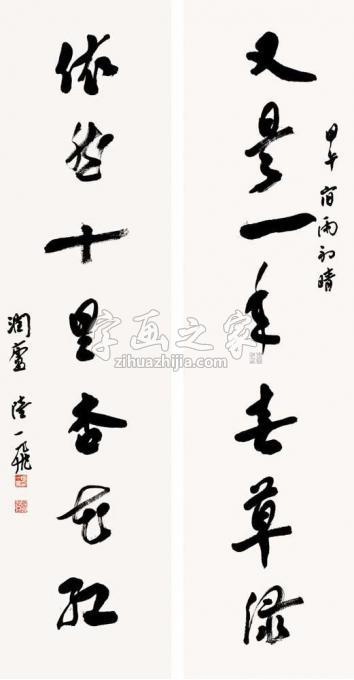 甲午宿雨初晴
又是一年春草绿
依然十里杏花红
润雪 陆一飞
字画之家
zihuazhijia.com